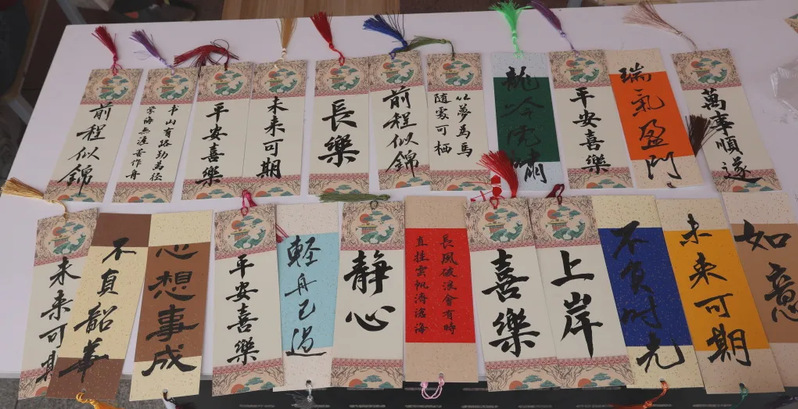 前程似錦
书山有路勤為徑
學海無涯苦作舟
平安喜樂
未来可期
長樂
前程似錦
以夢為馬
隨處可栖
龍吟虎嘯
平安喜樂
瑞氣盈門
萬事順遂
未来可期
不負韶華
心想事成
平安喜樂
軽舟已過
静心
長風破浪會有時
直挂雲帆濟滄海
喜樂
上岸
不负时光
未来可期
如意